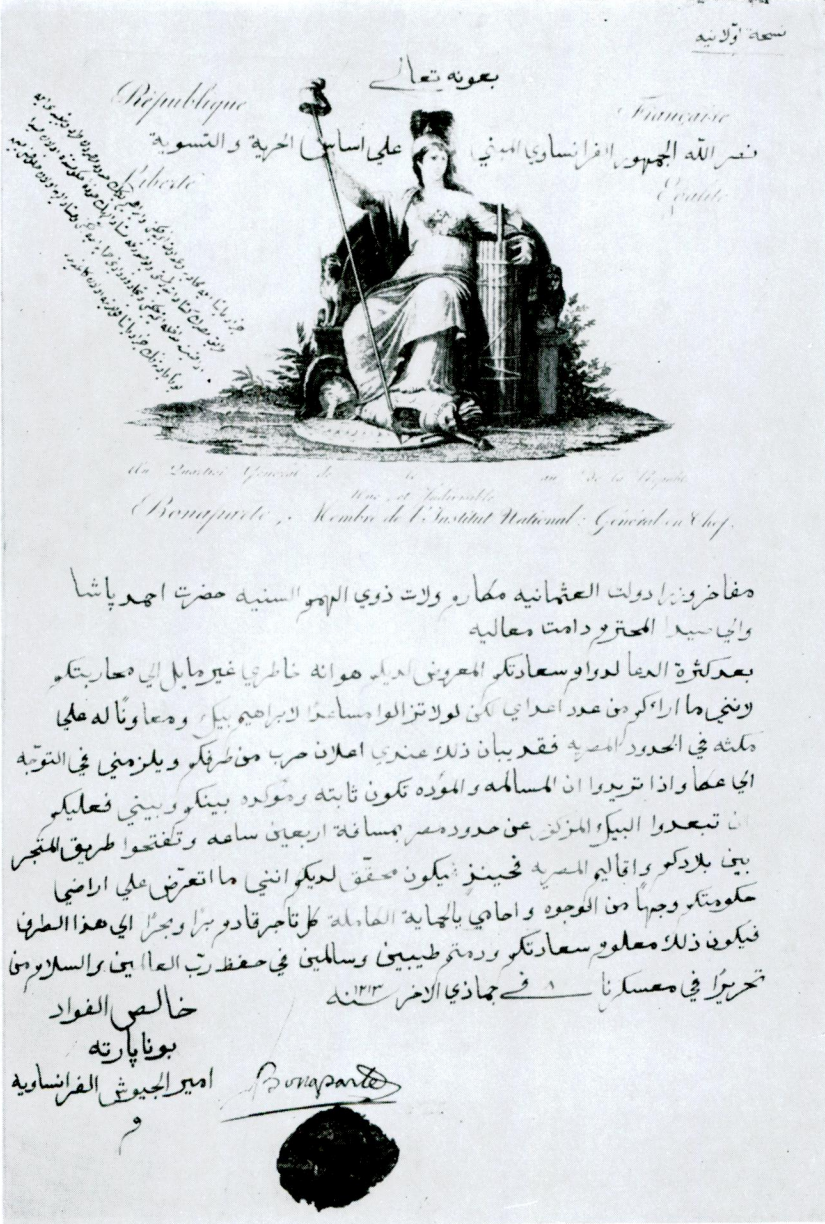 نسخة اولانيه
بعونه تعالى
République Française
نصر الله الجمهور الفرانساوي المبني علي اساس الحرية والتسوية
Liberté Egalité
Au Quartier Général de le an de la Répub
Une et Indivisible
Bonaparte, Membre de l'Institut National, Général en Chef.
مفاخر وزرا دولت العثمانيه مكارم ولات ذوي الهمو السنيه حضرت احمد پاشا
والي صيدا المحترم دامت معاليه
بعد كثرة الدعا لدوام سعادتكم المعروض لديكم هو انه خاطري غير مايل الي محاربتكم
لانني ما اراكم من عدد اعداي لكن لو لا تزالوا مساعدًا لابراهيم بيك ومعاونًا له علي
مكثه في الحدود المصريه فقد يبان ذلك عندي اعلان حرب من طرفكم ويلزمني في التوجّه
الي عكا واذا تريدوا ان المسالمه والمؤده تكون ثابته ومؤكده بينكم وبيني فعليكم
ان تبعدوا البيك المزكور عن حدود مصر بمسافة اربعين ساعه وتفتحوا طريق المتجر
بين بلادكم واقاليم المصريه فحينئذٍ يكون محقّق لديكم انني ما اتعرّض علي اراضي
حكومتكم وجهاً من الوجوه واحامي بالحماية الكاملة كل تاجر قادم برًا وبحرًا الي هذا الطرف
فيكون ذلك معلوم سعادتكم ودمتم طيبين وسالمين في حفظ ربّ العالمين والسلام من
تحريرًا في معسكرنا ٨ في جماذي الاخر سنه ١٢١٣
خالص الفواد
بوناپارته
امير الجيوش الفرانساويه
Bonaparte